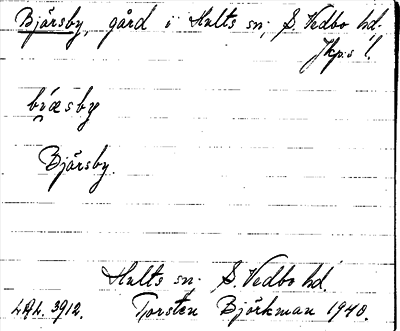 Bjärsby, gård i Hults sn, S. Vedbo hd.
Jkp:s l.
Bjärsby.
Hults sn. S. Vedbo hd.
Torsten Björkman 1940.